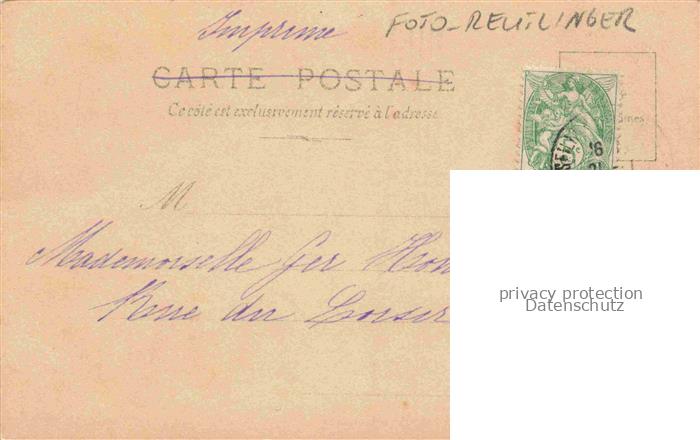 Imprimé
FOTO-REUTLINGER
CARTE POSTALE
Ce côté est exclusivement réservé à l'adresse
M
Mademoiselle Ger
Rue du Loisir
privacy protection
Datenschutz